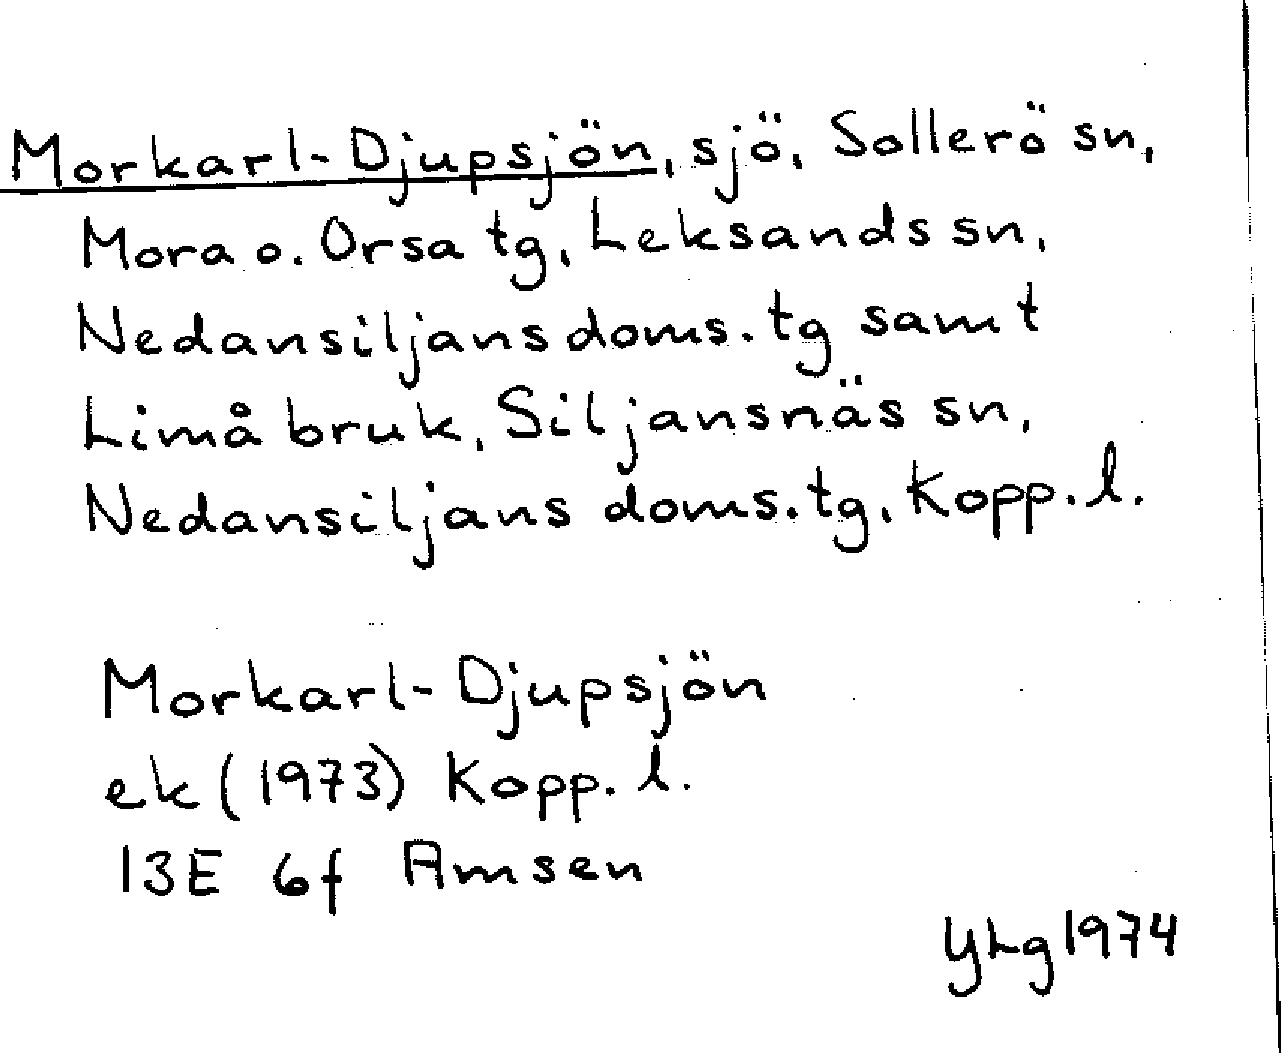 Morkarl-Djupsjön, sjö, Sollerö sn,
Mora o. Orsa tg, Leksands sn,
Nedansiljans doms. tg samt
Limå bruk, Siljansnäs sn,
Nedansiljans doms. tg, Kopp. l.
Morkarl-Djupsjön
ek (1973) Kopp. l.
13E 6f Amsen
YLg 1974